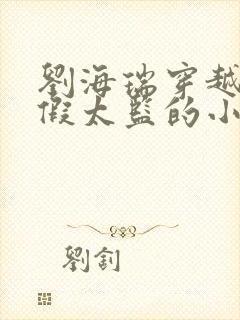 劉海瑞穿越
假太監的小
劉釗